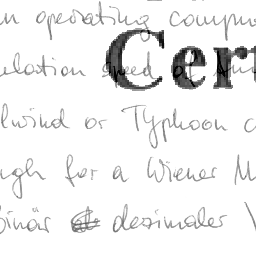 n operating compu
ulation speed of
Cert
lwind or Typhoon c
ugh for a Wiener M
Binär dezimaler V